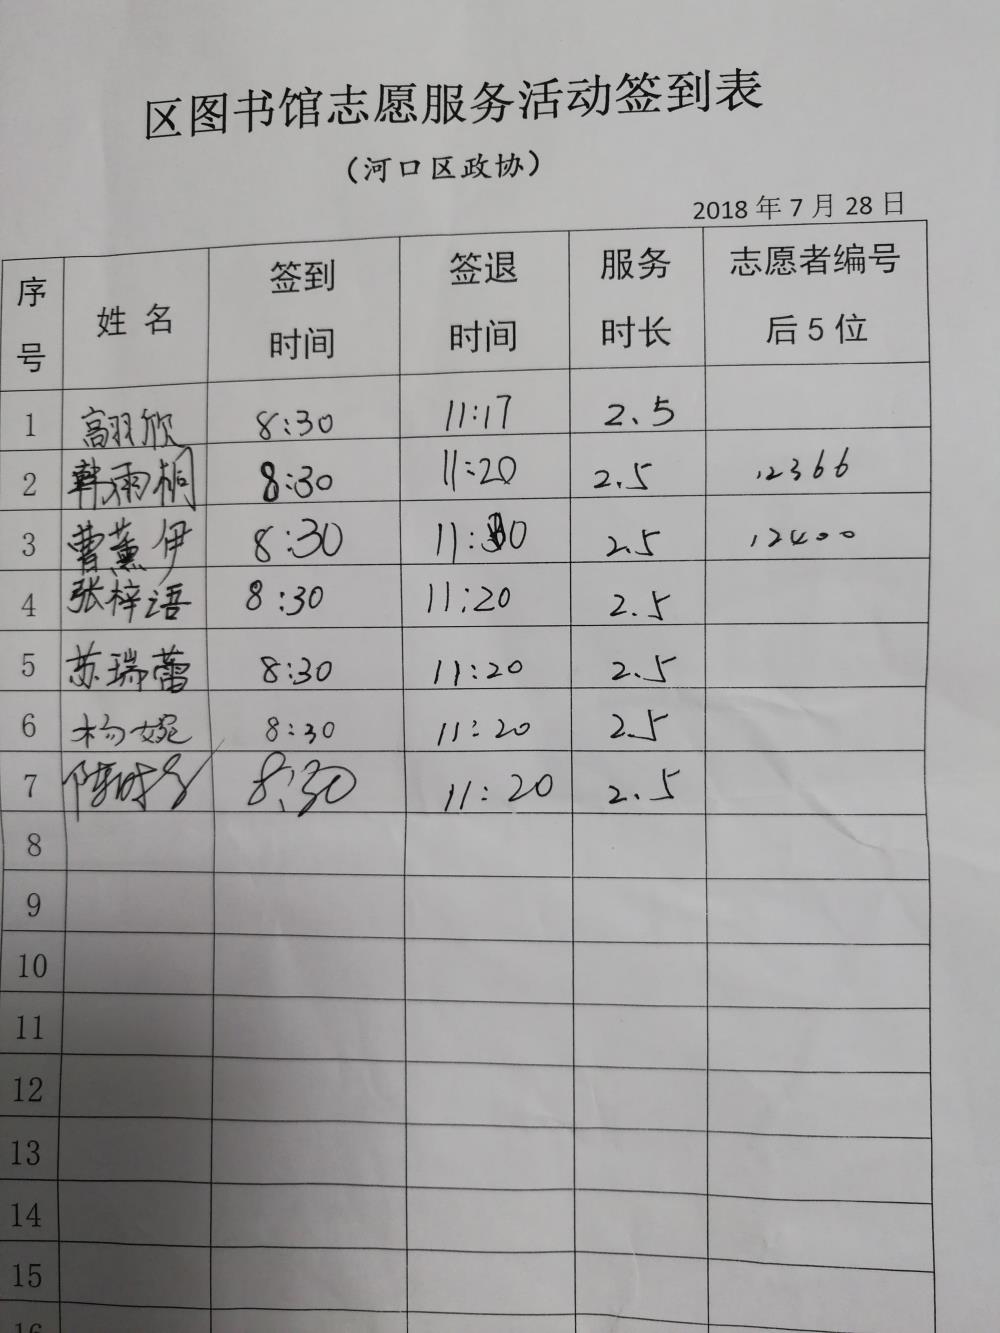 区图书馆志愿服务活动签到表
（河口区政协）
2018年7月28日
序号 姓名 签到时间 签退时间 服务时长 志愿者编号后5位
1 高羽欣 8:30 11:17 2.5
2 韩雨桐 8:30 11:20 2.5 12366
3 曹薰伊 8:30 2.5 12400
4 张梓语 8:30 11:20 2.5
5 苏瑞蕾 8:30 11:20 2.5
6 杨婉 8:30 11:20 2.5
7 8:30 11:20 2.5
8
9
10
11
12
13
14
15
16